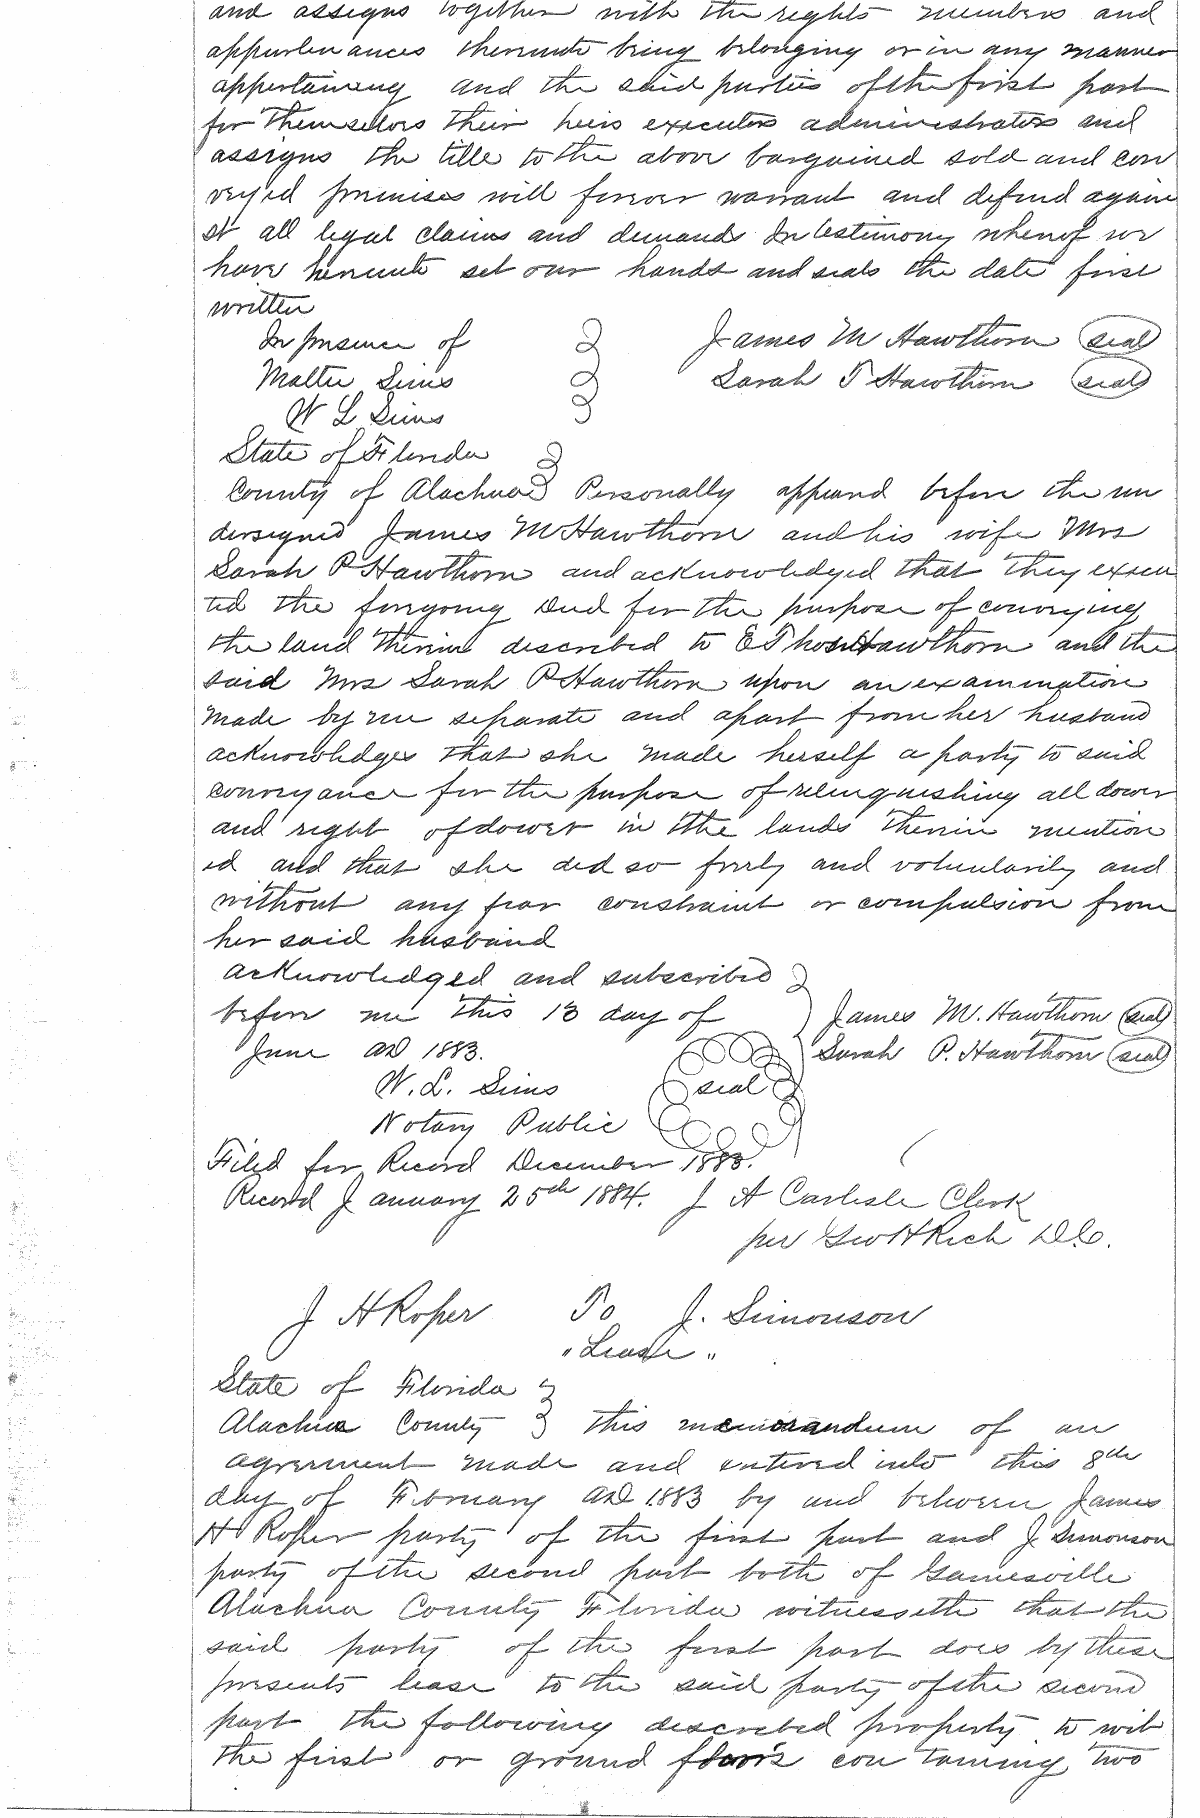 and assigns together with the rights members and
appurtenances thereunto being belonging or in any manner
appertaining and the said parties of the first part
for themselves their heirs executors administrators and
assigns the title to the above bargained sold and con
veyed premises will forever warrant and defend again
st all legal claims and demands In testimony whereof we
have hereunto set our hands and seals the date first
written
In presence of James M Hawthorn seal
Walter Sims Sarah P Hawthorn seal
W L Sims
State of Florida
County of Alachua Personally appeared before the un
dersigned James M Hawthorn and his wife Mrs
Sarah P Hawthorn and acknowledged that they execu
ted the foregoing Deed for the purpose of conveying
the land therein described to E Thos Hawthorn and the
said Mrs Sarah P Hawthorn upon an examination
made by me separate and apart from her husband
acknowledges that she made herself a party to said
conveyance for the purpose of relinquishing all dower
and right of dower in the lands therein mention
ed and that she did so freely and voluntarily and
without any fear constraint or compulsion from
her said husband
acknowledged and subscribed
before me this 13 day of James M. Hawthorn seal
June AD 1883. Sarah P. Hawthorn seal
W. L. Sims seal
Notary Public
Filed for Record December 1883.
Record January 25th 1884. J A Carlisle Clerk
per Geo H Rich D.C.
J H Roper To J. Simonson
"Lease"
State of Florida
Alachua County this memorandum of an
agreement made and entered into this 8th
day of February AD 1883 by and between James
H Roper party of the first part and J Simonson
party of the second part both of Gainesville
Alachua County Florida witnesseth that the
said party of the first part does by these
presents lease to the said party of the second
part the following described property to wit
the first or ground floors containing two